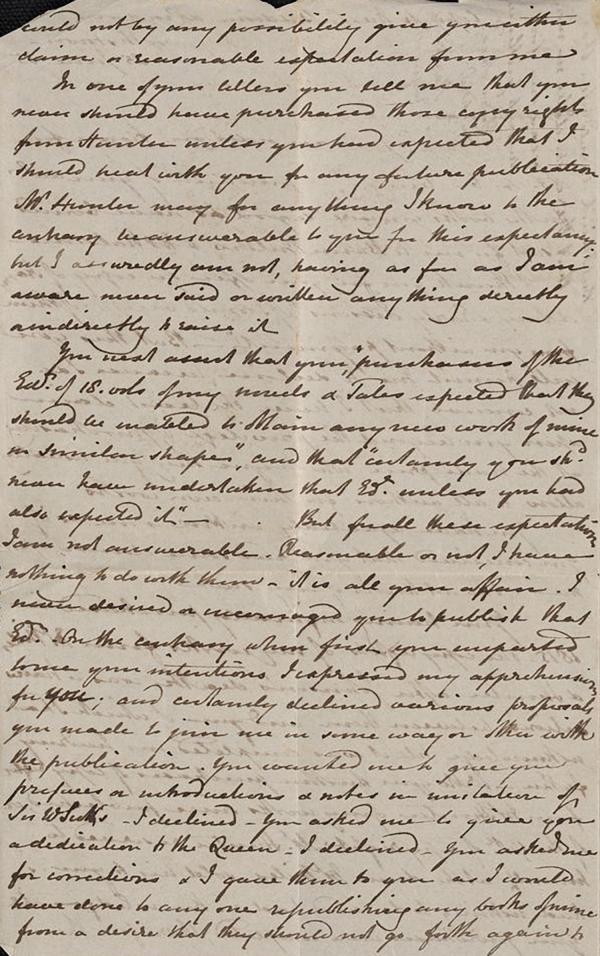 could not by any possibility give you either
claim or reasonable expectation from me
In one of your letters you tell me that you
never should have purchased those copy rights
from Hunter unless you had expected that I
should treat with you for any future publication
Mr. Hunter may for any thing I know to the
contrary be answerable to you for this expectancy;
but I assuredly am not, having as far as I am
aware never said or written any thing directly
or indirectly to raise it
You next assert that your "purchasers of the
Edn. of 18. vols of my novels & Tales expected that they
should be enabled to obtain any new work of mine
in similar shape", and that "certainly you shd.
never have undertaken that Edn. unless you had
also expected it" — . But for all these expectations
I am not answerable. Reasonable or not, I have
nothing to do with them - it is all your affair. I
never desired or encouraged you to publish that
Edn. - On the contrary when first you imparted
to me your intentions I expressed my apprehensions
for you; and certainly declined various proposals
you made to join me in some way or other with
the publication. You wanted me to give you
prefaces or introductions & notes in imitation of
Sir W Scott's - I declined - You asked me to give you
a dedication to the Queen - I declined - You asked me
for corrections & I gave them to you as I would
have done to any one republishing any books of mine
from a desire that they should not go forth again to